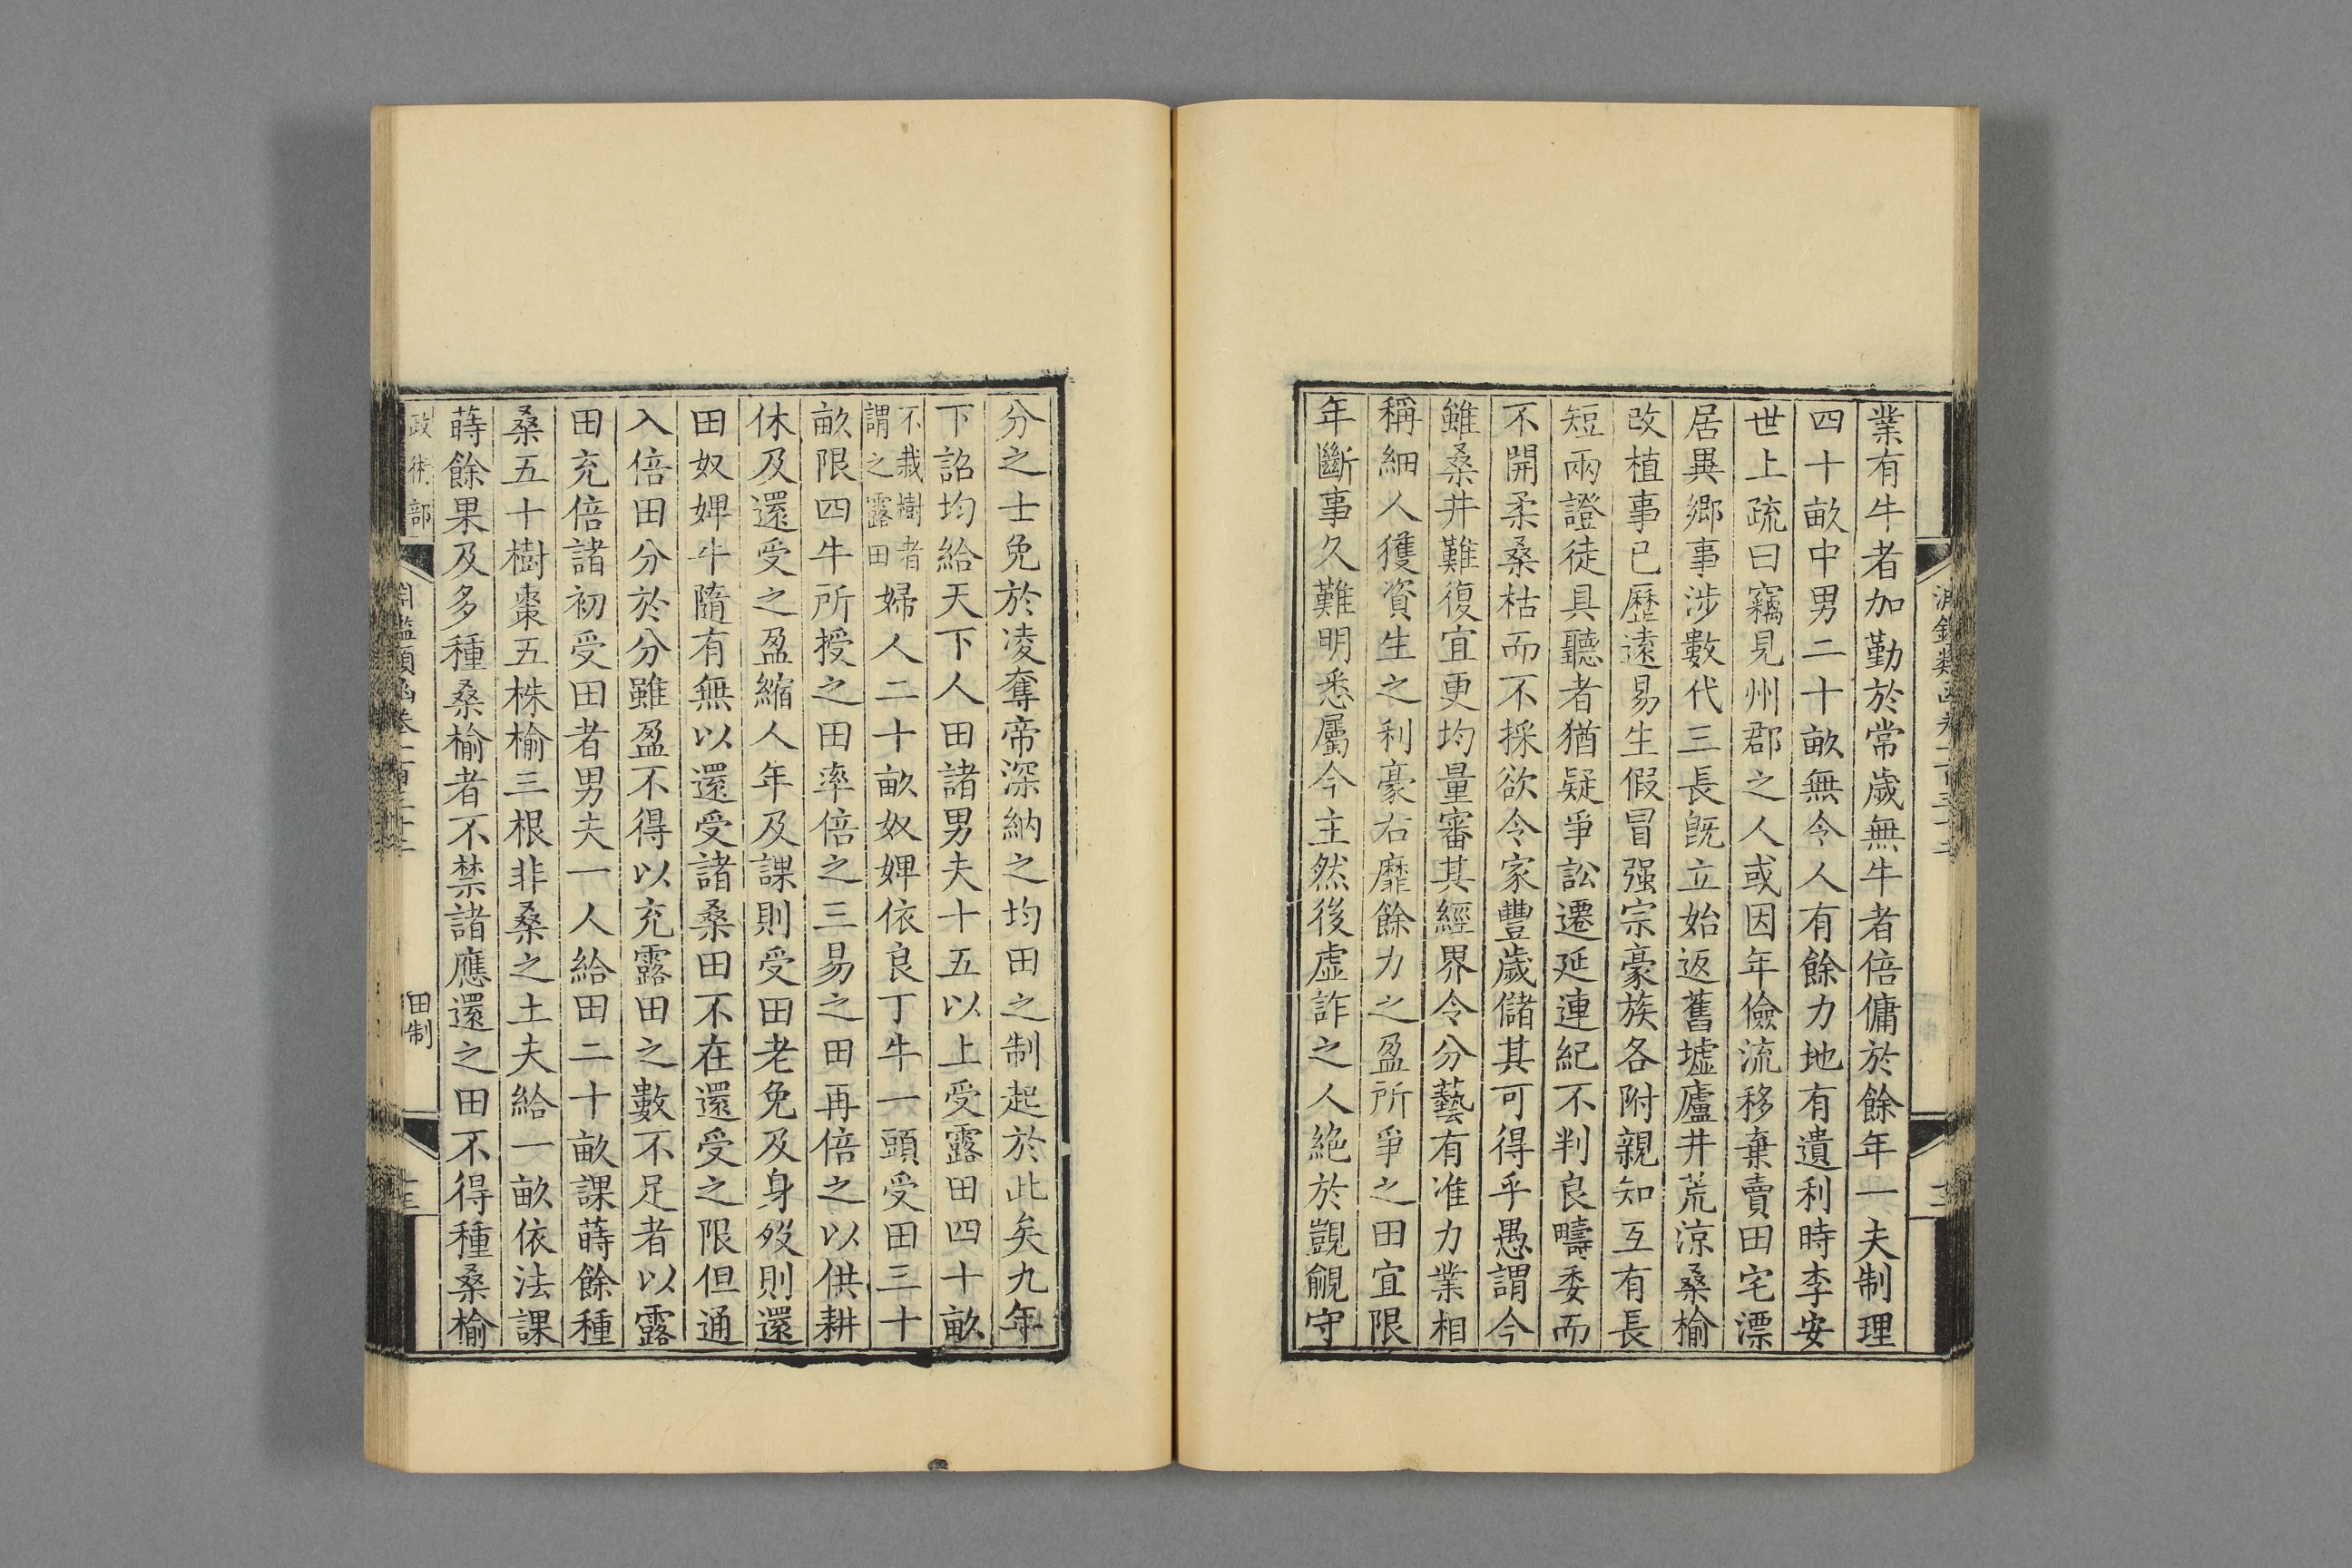 業有牛者加勤於常歲無牛者倍傭於餘年一夫制理
四十畝中男二十畝無令人有餘力地有遺利時李安
世上疏曰竊見州郡之人或因年儉流移棄賣田宅漂
居異鄉事涉數代三長旣立始返舊墟廬井荒涼桑榆
改植事已歷遠易生假冒强宗豪族各附親知互有長
短兩證徒具聽者猶疑爭訟遷延連紀不判良疇委而
不開柔桑枯而不採欲令家豐歲儲其可得乎愚謂今
雖桑井難復宜更均量審其經界令分藝有准力業相
稱細人獲資生之利豪右靡餘力之盈所爭之田宜限
年斷事久難明悉屬今主然後虛詐之人絕於覬覦守
分之士免於凌奪帝深納之均田之制起於此矣九年
下詔均給天下人田諸男夫十五以上受露田四十畝
不栽樹者
謂之露田
婦人二十畝奴婢依良丁牛一頭受田三十
畝限四牛所授之田率倍之三易之田再倍之以供耕
休及還受之盈縮人年及課則受田老免及身歿則還
田奴婢牛隨有無以還受諸桑田不在還受之限但通
入倍田分於分雖盈不得以充露田之數不足者以露
田充倍諸初受田者男夫一人給田二十畝課蒔餘種
桑五十樹棗五株榆三根非桑之土夫給一畝依法課
蒔餘果及多種桑榆者不禁諸應還之田不得種桑榆
政術部
田制